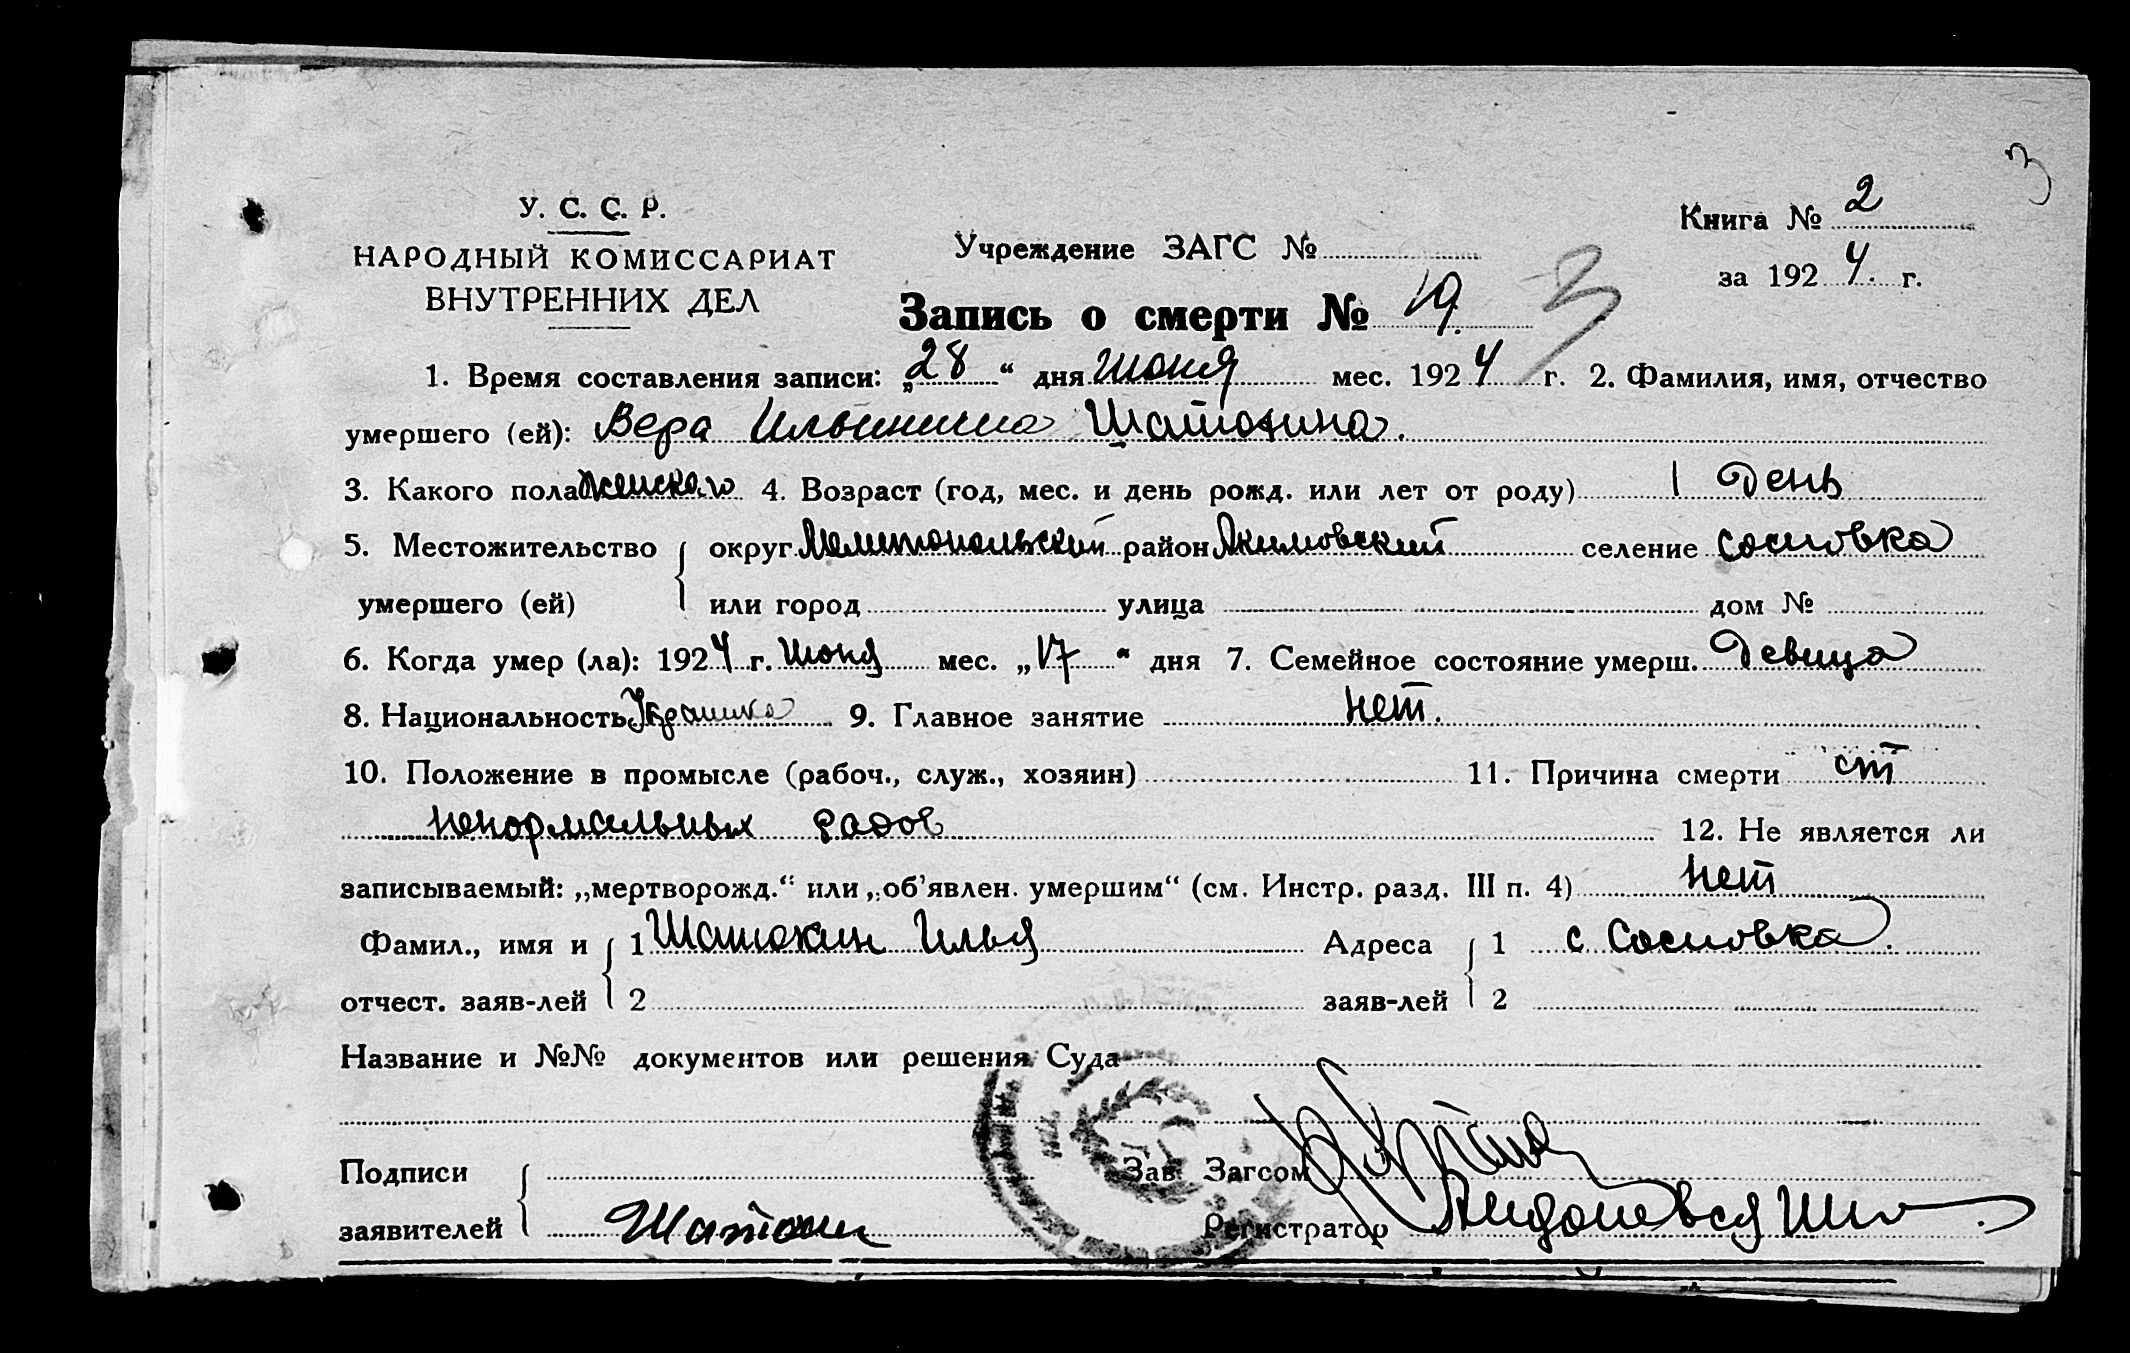 3
У. С. С. Р.
НАРОДНЫЙ КОМИССАРИАТ
ВНУТРЕННИХ ДЕЛ
Учреждение ЗАГС №
Книга № 2
за 1924 г.
Запись о смерти № 19. 3
1. Время составления записи: „28“ дня июня мес. 1924 г. 2. Фамилия, имя, отчество
умершего (ей): Вера Ильинична Шатохина.
3. Какого пола женскаго 4. Возраст (год, мес. и день рожд. или лет от роду) 1 день
5. Местожительство округ Мелитопольский район Якимовский селение Сосновка
умершего (ей) или город улица дом №
6. Когда умер (ла): 1924 г. июня мес. „17“ дня 7. Семейное состояние умерш. Девица
8. Национальность 9. Главное занятие нет.
10. Положение в промысле (рабоч., служ., хозяин) 11. Причина смерти от
ненормальных родов 12. Не является ли
записываемый: „мертворожд.“ или „об'явлен. умершим“ (см. Инстр. разд. III п. 4) нет
Фамил., имя и 1 Шатохин Илья Адреса 1 с Сосновка.
отчест. заяв-лей 2 заяв-лей 2
Название и №№ документов или решения Суда
Подписи Зав. Загсом
заявителей Шатохин Регистратор